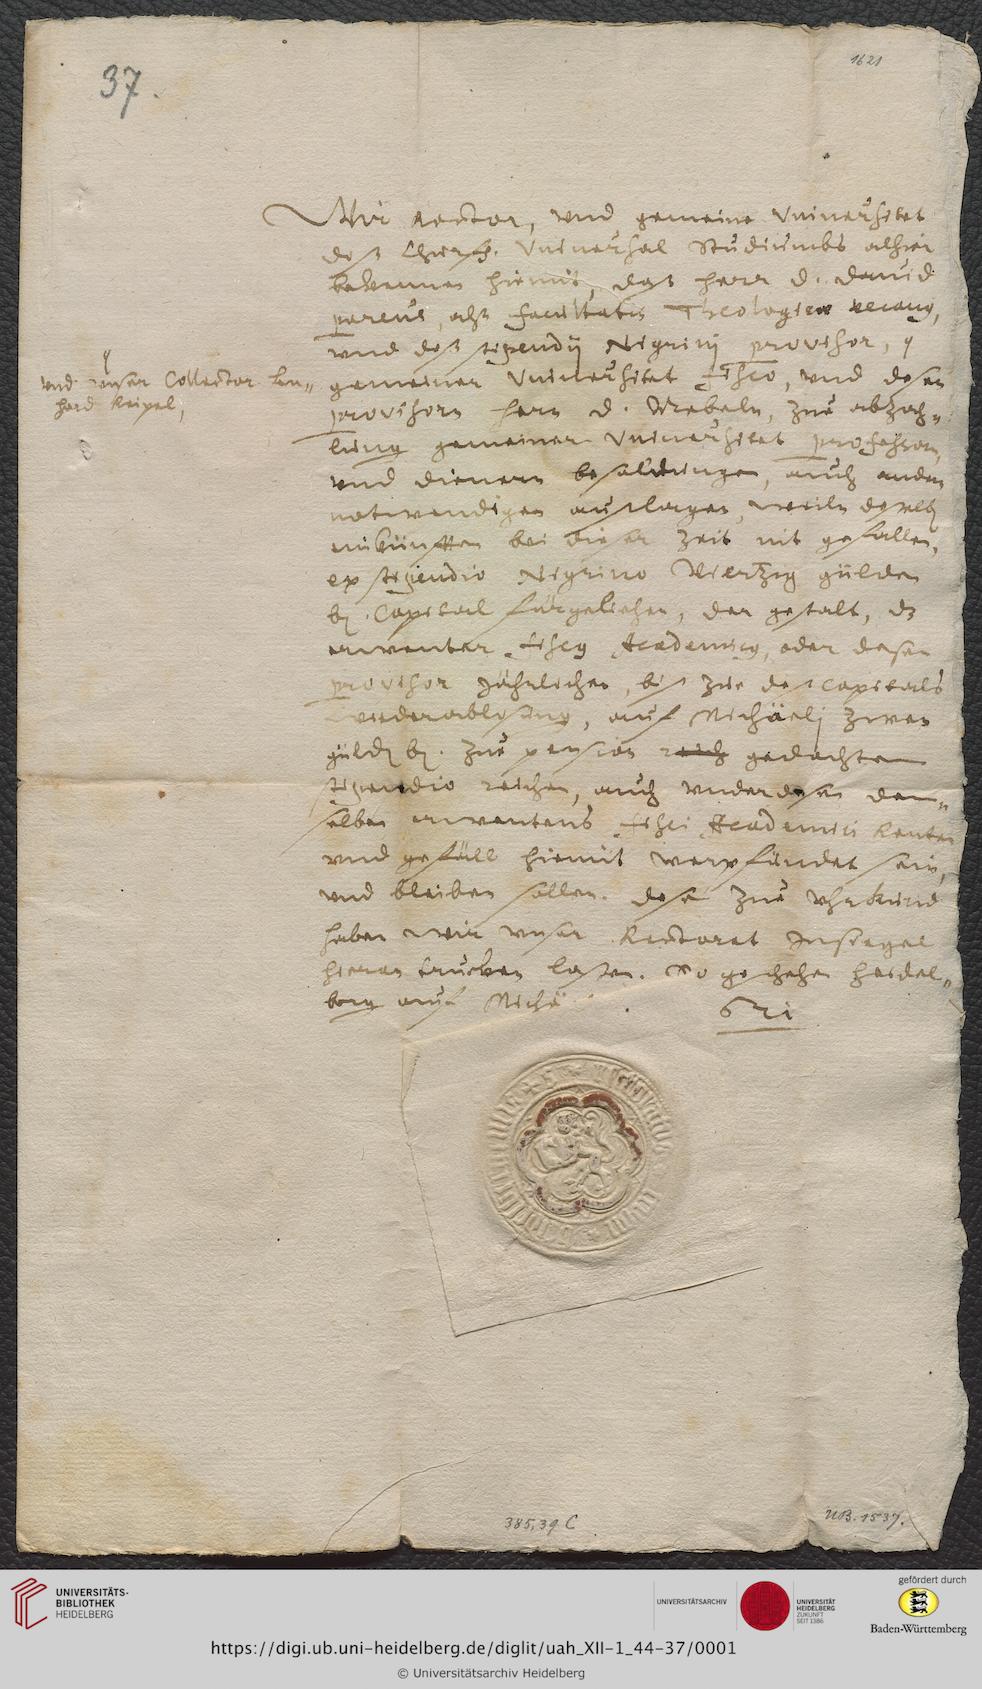 37.
1621
Wir Rector, vnd gemeine Vniuersitet
deß Churf. Vniuersal Studiumbs alhier
bekennen hiemit, daß herr D. Dauid
Pareus, alß facultatis Theologicae decang,
vnd deß stipendij Nigrinj prouisor,
vnd vnser Collector Len=
hard Keipel,
gemeiner Vniuersitet fisco, vnd deßen
prouisorn herrn D. Rebeln, zue abzah=
lung gemeiner Vniuersitet profeßorn,
vnd dienern besoldungen, auch andern
notwendigen außlagen, weiln derselb
einkünfften bei dieser zeit nit gefallen,
ex stipendio Nigrino Viertzig gülden
bz. Capital fürgeliehen, der gestalt, dz
ermelter fiscy Academicy, oder deßen
prouisor Jährlichen, biß zue deß Capitals
wiederablosung, auf Michäelj zwen
güld bz. zue pension reich gedachtem
stipendio reichen, auch vnderdeßen dem=
selben ermeltens fisci Academici Renten
vnd gefäll hiemit verpfändet sein,
vnd bleiben sollen. Deßen zue vhrkund
haben wir vnser Rectorat Insiegel
hieran trucken laßen. So geschehen Heidel=
berg auf Michä
621
385,39 C
UB. 1537.
UNIVERSITÄTS-
BIBLIOTHEK
HEIDELBERG
UNIVERSITÄTSARCHIV
UNIVERSITÄT
HEIDELBERG
ZUKUNFT
SEIT 1386
gefördert durch
Baden-Württemberg
https://digi.ub.uni-heidelberg.de/diglit/uah_XII-1_44-37/0001
© Universitätsarchiv Heidelberg